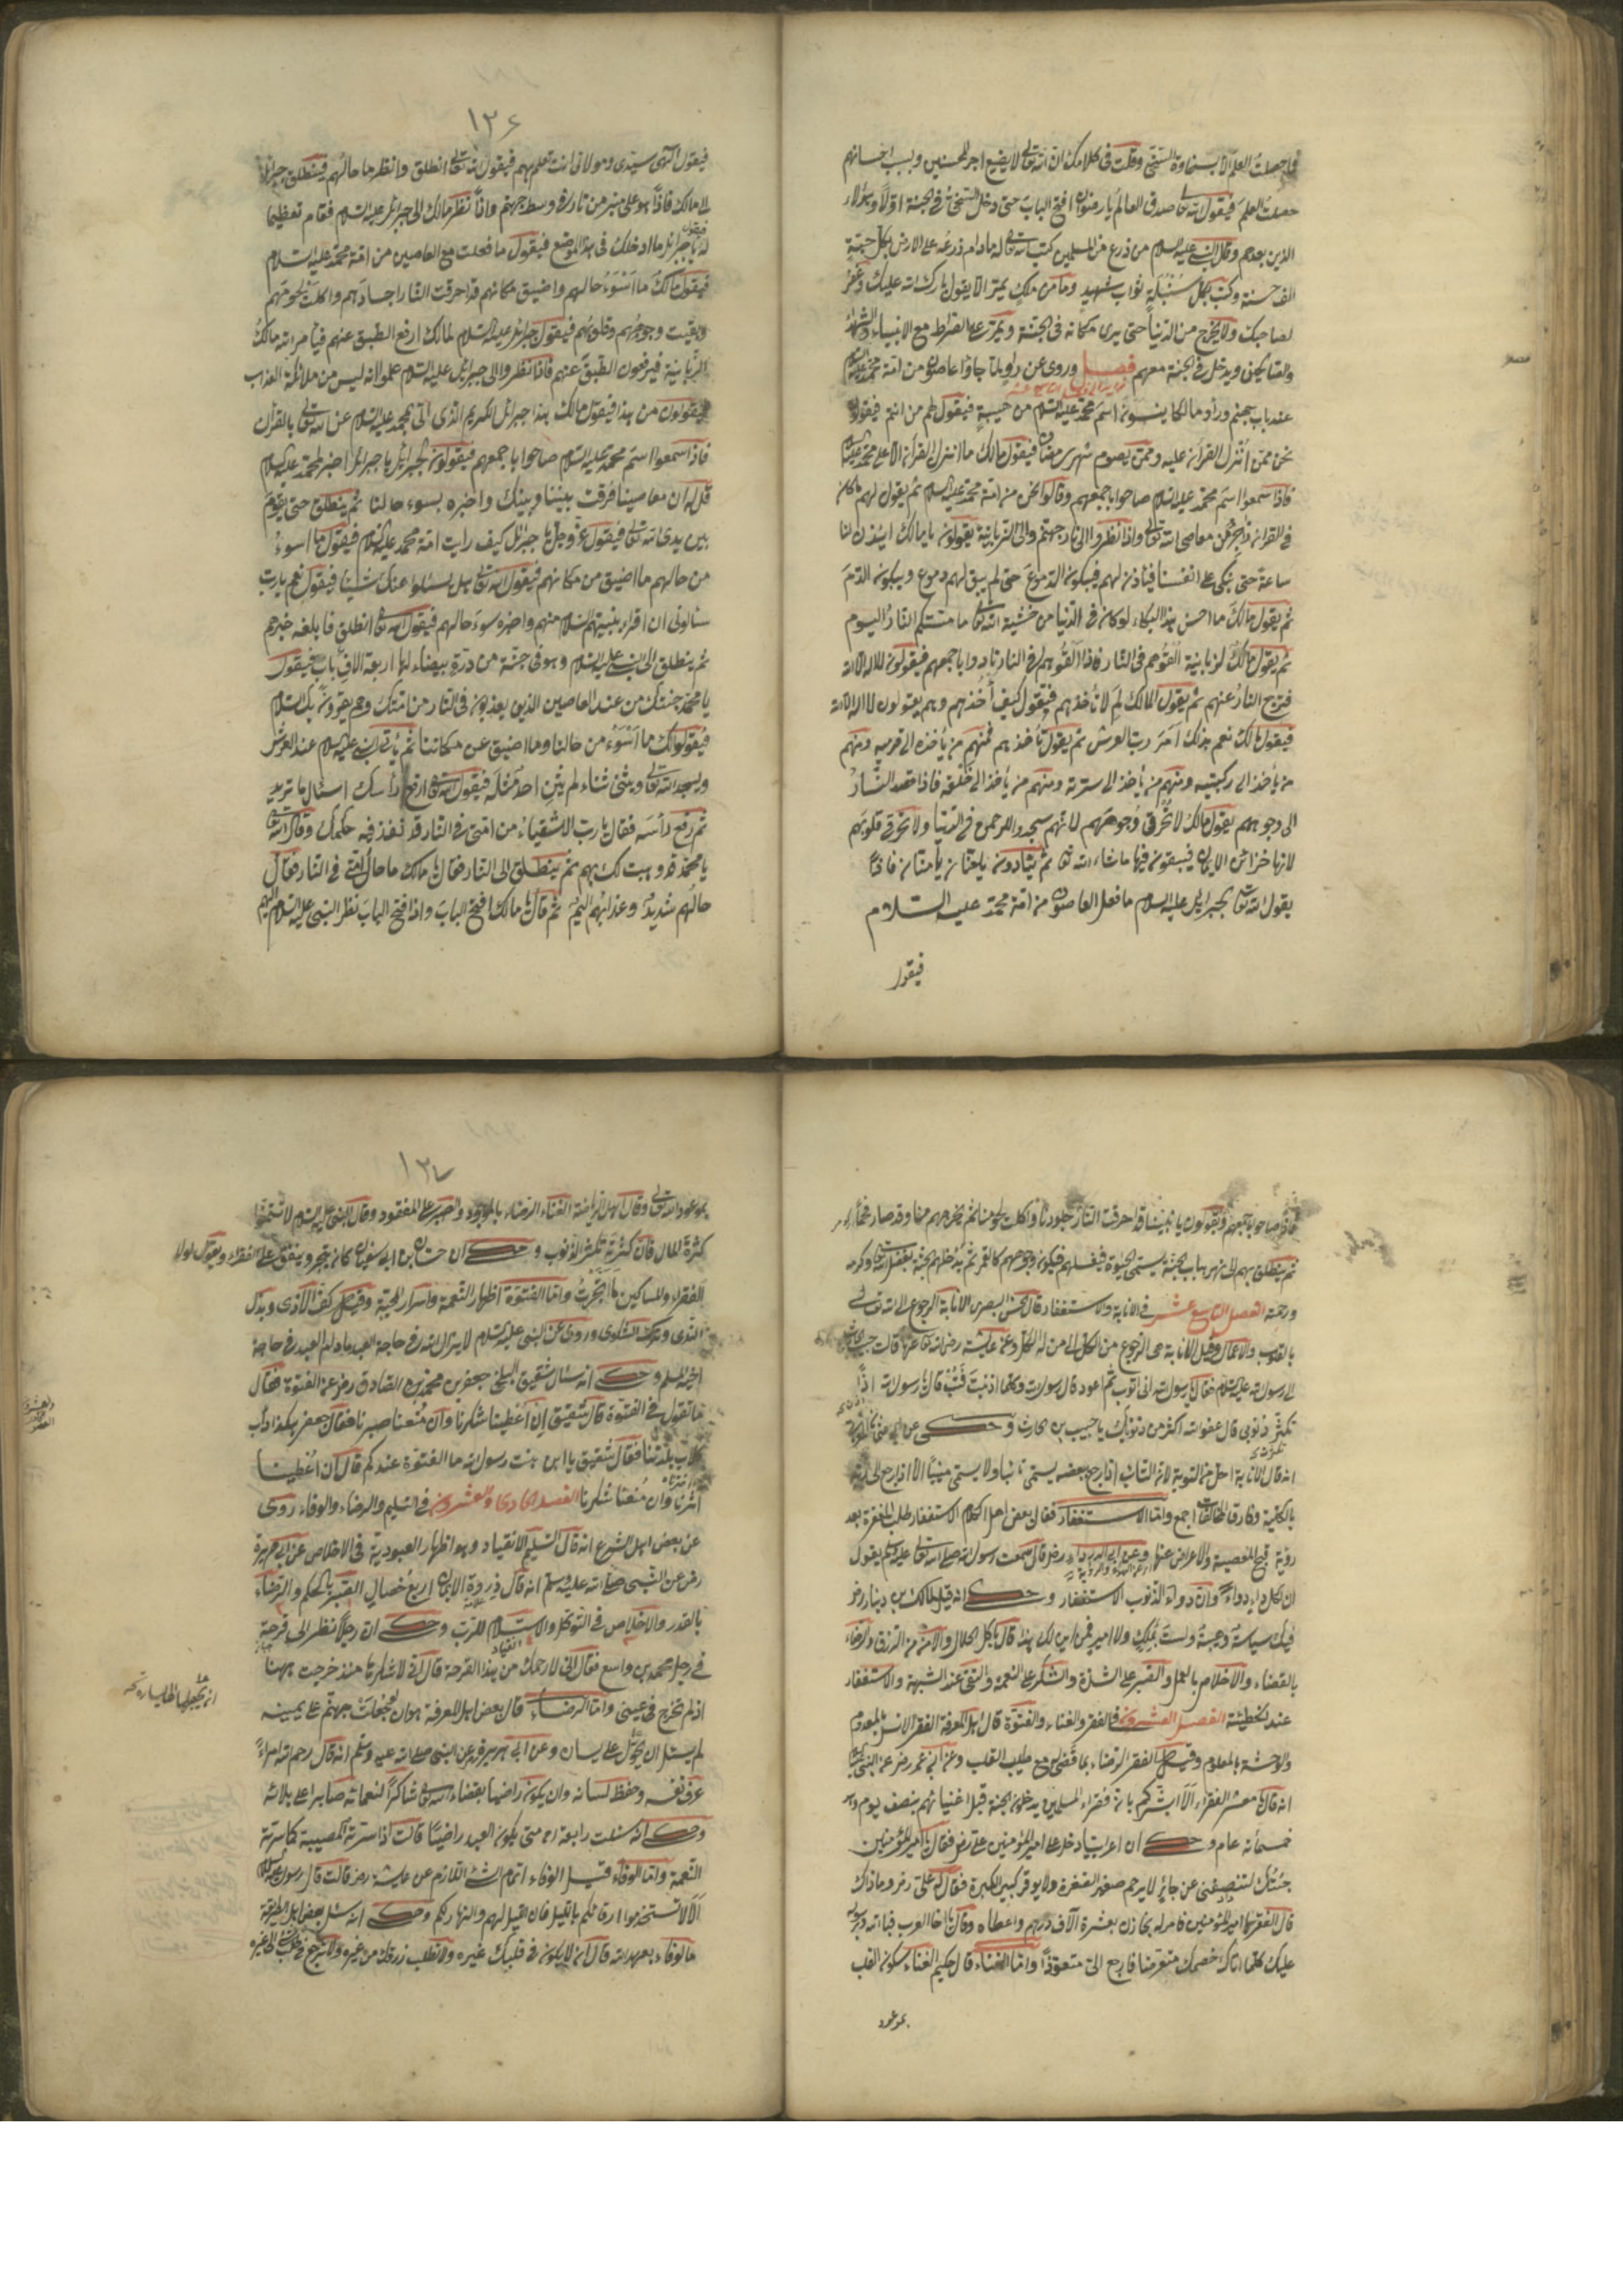 ما حصلت العلم الا بسخاوة السخي وقلت في كلامك ان الله تعالى لا يضيع اجر المحسنين وبسبب احسانهم
حصلت العلم فيقول الله تعالى صدق العالم يا رضوان افتح الباب حتى دخل السخي في الجنة اولا وهؤلاء
الذين بعدهم وقال النبي عليه السلام من ذرع من المسلمين كتب الله تعالى له ما دام ذرعه على الارض بكل حبة
الف حسنة وكتب بكل سنبلة ثواب شهيد وما من ملك يمر الا يقول بارك الله عليك وغفر
لصاحبك ولا يخرج من الدنيا حتى يرى مكانه في الجنة ويمر على الصراط مع الانبياء والشهداء
والصالحين ويدخل في الجنة معهم فصل وروى عن جاؤا عاصون من امة محمد عليه السلام
عند باب جهنم ورأو مالكا ينسون اسم محمد عليه السلام من هيبته فيقول لهم من انتم فيقولون
نحن ممن انزل القرآن عليه وممن يصوم شهر رمضان فيقول مالك ما انزل القرآن الا على محمد عليه السلام
فاذا سمعوا اسم محمد عليه السلام صاحوا باجمعهم وقالوا نحن من امة محمد عليه السلام ثم يقول لهم ما كان
في القرآن زاجر عن معاصي الله تعالى واذا نظروا الى نار جهنم والى الزبانية يقولون يا مالك ايئذن لنا
ساعة حتى نبكي على انفسنا فيأذن لهم فيبكون الدموع حتى لم يبق لهم دموع ويبكون الدم
ثم يقول مالك ما احسن هذا البكاء لو كان في الدنيا من خشية الله تعالى ما مستكم النار اليوم
ثم يقول مالك لزبانية القوهم في النار فاذا القوهم في النار نادوا باجمعهم فيقولون لا اله الا الله
فترجع النار عنهم ثم يقول المالك لم لا تأخذهم فيقول كيف أخذهم وهم يقولون لا اله الا الله
فيقول مالك نعم بذلك امر رب العرش ثم يقول تأخذهم فمنهم من يأخذه الى قدميه ومنهم
من يأخذ الى ركبتيه ومنهم من يأخذ الى سرته ومنهم من يأخذ الى حلقه فاذا قصد النار
الى وجوههم يقول مالك لا تحرقي وجوههم لانهم سجدوا للرحمن في الدنيا ولا تحرقي قلوبهم
لانها خزائن الايمان فيبقون فيها ما شاء الله تعالى ثم ينادون يا حنان يا منان فاذا
يقول الله تعالى لجبرائيل عليه السلام ما فعل العاصون من امة محمد عليه السلام
فيقول
١٣٦
فيقول الهي سيدي ومولائي انت تعلم بهم فيقول الله تعالى انطلق وانظر ما حالهم فينطلق جبرائيل
الى مالك فاذا هو على منبر من نار في وسط جهنم واذا نظر مالك الى جبرائيل عليه السلام فقام تعظيما
له فيقول يا جبرائيل ما ادخلك في هذا الموضع فيقول ما فعلت مع العاصين من امة محمد عليه السلام
فيقول مالك ما اسوء حالهم واضيق مكانهم قد احرقت النار اجسادهم واكلت لحومهم
وبقيت وجوههم وقلوبهم فيقول جبرائيل عليه السلام لمالك ارفع الطبق عنهم فيأمر الله مالك
الزبانية فيرفعون الطبق عنهم فاذا نظروا الى جبرائيل عليه السلام علموا انه ليس من ملائكة العذاب
فيقولون من هذا فيقول مالك هذا جبرائيل الكريم الذي اتى بمحمد عليه السلام عن الله تعالى بالقرآن
فاذا سمعوا اسم محمد عليه السلام صاحوا باجمعهم فيقولون لجبرائيل يا جبرائيل اخبر لمحمد عليه السلام
قل له ان معاصينا فرقت بيننا وبينك واخبره بسوء حالنا ثم ينطلق حتى يقوم
بين يدي الله تعالى فيقول عز وجل يا جبرائيل كيف رايت امة محمد عليه السلام فيقول ما اسوء
من حالهم ما اضيق من مكانهم فيقول الله تعالى هل يسئلوا عنك شيئا فيقول نعم يا رب
سألوني ان اقراء نبيهم السلام منهم واخبره سوء حالهم فيقول الله تعالى انطلق فابلغه خبرهم
ثم ينطلق الى النبي عليه السلام وهو في جنة من درة بيضاء لها اربعة الاف باب فيقول
يا محمد جئتك من عند العاصين الذين يعذبون في النار من امتك وهم يقرونك السلام
فيقولوا لك ما اسوء من حالنا وما اضيق عن مكاننا ثم يأتي النبي عليه السلام عند العرش
ويسجد الله تعالى ويثني ثناء لم يثن احد مثله فيقول الله تعالى ارفع رأسك اسئل ما تريد
ثم رفع رأسه فقال يا رب الاشقياء من امتي في النار قد نفذ فيه حكمك وقال الله تعالى
يا محمد قد وهبت لك بهم ثم ينطلق الى النار فقال يا مالك ما حال امتي في النار فقال
حالهم شديد وعذابهم اليم ثم قال يا مالك افتح الباب واذا فتح الباب نظر النبي عليه السلام اليهم
صاحوا باجمعهم فيقولون يا نبينا قد احرقت النار جلودنا واكلت لحومنا ثم يخرجهم منها وقد صار
ثم ينطلق بهم الى نهر بباب الجنة يسمى الحيوة فيغسلهم فيكون وجوههم كالقمر ثم يدخلهم الجنة بفضل الله تعالى وكرمه
ورحمته الفصل التاسع عشر في الانابة والاستغفار قال الحسن البصري الانابة الرجوع الى الله تعالى
بالقلوب والاعمال وقيل الانابة هي الرجوع من الكل الى من له الكل وعن عايشة رضي الله تعالى عنها قالت جاء حبيب
الى رسول الله عليه السلام فقال يا رسول الله اني اتوب ثم اعود قال رسول الله وكلما اذنبت فتب قال يا رسول الله اذا
تكثر ذنوبي قال عفو الله اكثر من ذنوبك يا حبيب بن الحارث و حكى عن
انه قال الانابة اجل من التوبة لان التائب اذا رجع بعضه يسمى تائبا ولا يسمى منيبا الا اذا رجع الى ربه
بالكلية وفارق المخالفات اجمع واما الاستغفار فقال بعض اهل الكلام الاستغفار طلب المغفرة بعد
رؤية قبح المعصية والاعراض عنها وعن ابي الدرداء رض قال سمعت رسول الله صلى الله تعالى عليه وسلم يقول
ان لكل داء دواء وان دواء الذنوب الاستغفار و حكى انه قيل لمالك بن دينار رض
فيك سياسة وهيبة ولست بملك ولا امير فمن اين لك هذا قال باكل الحلال والامن من الرزق والرضاء
بالقضاء والاخلاص بالعمل والصبر على الشدة والشكر على النعمة والتقى عند الشبهة والاستغفار
عند الخطيئة الفصل العشرون في الفقر والغناء والفتوة قال اهل المعرفة الفقر الانس بالمعدوم
والوحشة بالمعلوم وقيل الفقر الرضاء بما قضى مع طيب القلب وعن ابن عمر رض عن النبي عليه السلام
انه قال يا معشر الفقراء ألا ابشركم بان فقراء المسلمين يدخلون الجنة قبل اغنيائهم بنصف يوم وهو
خمسمأئة عام و حكى ان اعرابيا دخل على امير المؤمنين علي رض فقال يا امير المؤمنين
جئتك لتنصفني عن جائر لا يرحم صغير الصغره ولا يوقر كبير الكبره فقال له علي رض وما ذاك
قال الفقر يا امير المؤمنين فامر له بخازن بعشرة آلاف درهم واعطاه وقال يا اخا العرب فبالله ورسوله
عليك كلما اتاك خصمك متعرضا فارجع الي متعوذا واما الغناء قال حكيم الغناء سكون القلب
بموعود
١٣٧
بموعود الله تعالى وقال اهل الرياضة الغناء الرضاء بالموجود والصبر على المفقود وقال النبي عليه السلام لا تتمنوا
كثرة المال فان كثرته تكثر الذنوب و حكى ان حسان بن ابي سنان كان يتجر وينفق على الفقراء ويقول لولا
الفقراء والمساكين ما اتجرت واما الفتوة اظهار النعمة واسرار المحبة وقيل كف الاذى وبذل
الندى وترك الشكوى وروى عن النبي عليه السلام لا يزال الله في حاجة العبد ما دام العبد في حاجة
اخيه المسلم و حكى انه سئل شقيق البلخي جعفر بن محمد الصادق رض عن الفتوة فقال
ما تقول في الفتوة قال شقيق ان اعطينا شكرنا وان منعنا صبرنا فقال جعفر هكذا دأب
كلاب بلدتنا فقال شقيق يا ابن بنت رسول الله ما الفتوة عندكم قال ان اعطينا
اثرنا وان منعنا شكرنا الفصل الحادي والعشرون في التسليم والرضاء والوفاء روى
عن بعض اهل الشرع انه قال التسليم الانقياد وهو اظهار العبودية في الاخلاص عن ابي هريرة
رض عن النبي صلى الله عليه وسلم انه قال ذروة الايمان اربع خصال الصبر بالحكم والرضاء
بالقدر والاخلاص في التوكل والاستسلام للرب و حكى ان رجلا نظر الى قرحة
في رجل محمد بن واسع فقال اني لارحمك من هذا القرحة قال اني لاشكرها منذ خرجت
اذ لم تخرج في عيني واما الرضاء قال بعض اهل المعرفة هو ان لو جعلت جهنم على يمينه
لم يسئل ان يحول على يساره وعن ابي هريرة رض عن النبي صلى الله عليه وسلم انه قال رحم الله امراء
عرف نفسه وحفظ لسانه وان يكون راضيا بقضاء الله تعالى شاكرا لنعمائه صابرا على بلائه
و حكى انه سئلت رابعة متى يكون العبد راضيا قالت اذا سرته المصيبة كما سرته
النعمة واما الوفاء قيل الوفاء اتمام الشئ اللازم عن عايشة رض قالت قال رسول الله عليه السلام
ألا لا تستخدموا ارقائكم بالليل فان الليل لهم والنهار لكم و حكى انه سئل بعض اهل الطريقة
ما الوفاء بعهد الله قال ان لا يكون في قلبك غيره ولا تطلب رزقك من غيره ولا ترجع في الى غيره